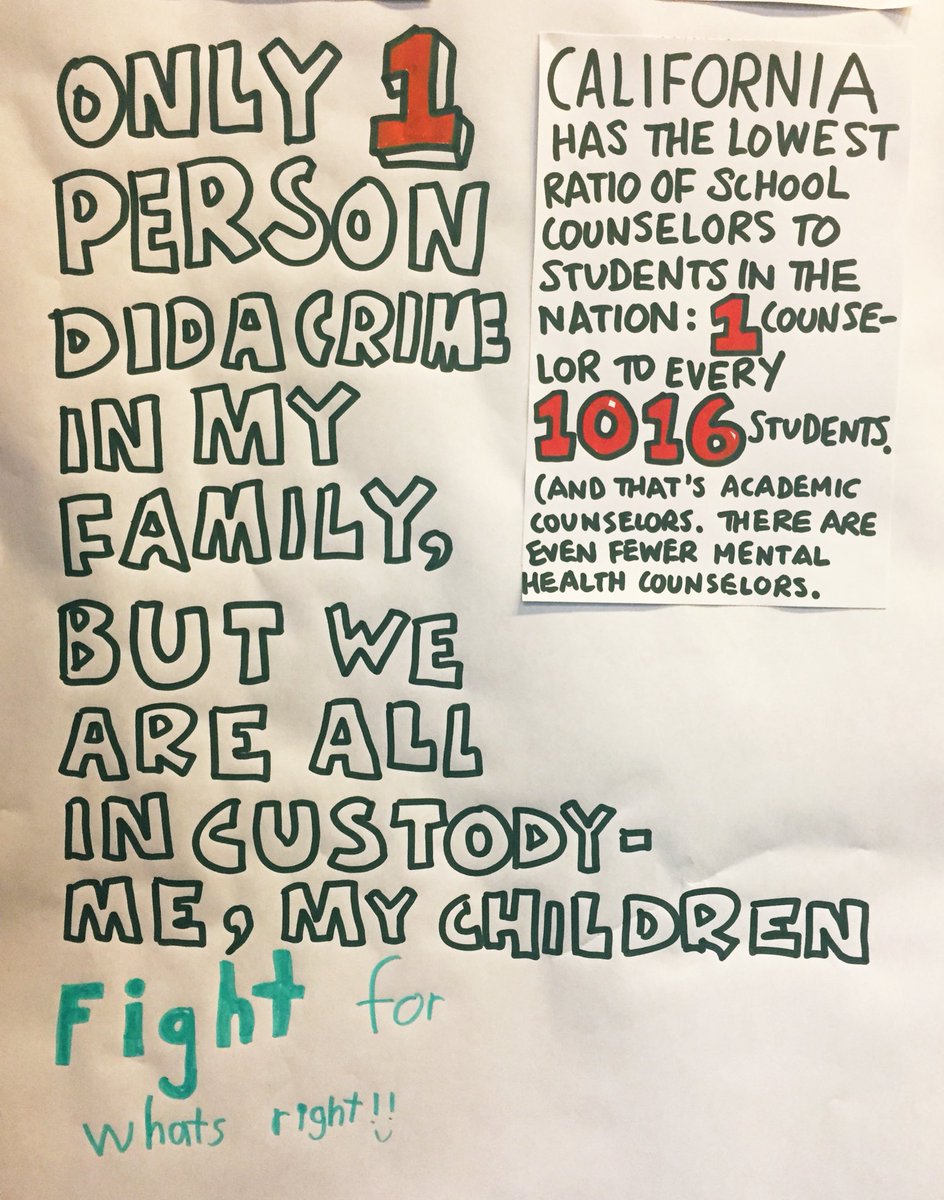 ONLY 1
PERSON
DID A CRIME
IN MY
FAMILY,
BUT WE
ARE ALL
IN CUSTODY-
ME, MY CHILDREN
Fight for
whats right!!
CALIFORNIA
HAS THE LOWEST
RATIO OF SCHOOL
COUNSELORS TO
STUDENTS IN THE
NATION: 1 COUNSE-
LOR TO EVERY
1016 STUDENTS.
(AND THAT'S ACADEMIC
COUNSELORS. THERE ARE
EVEN FEWER MENTAL
HEALTH COUNSELORS.